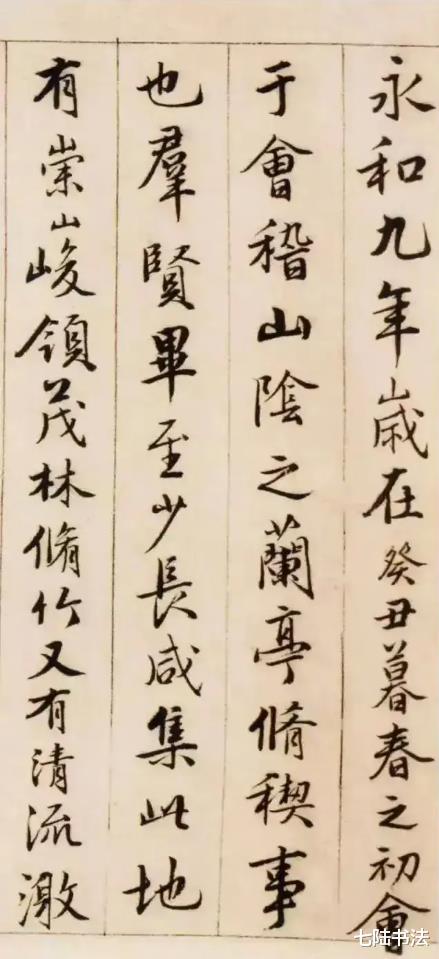 永和九年歲在癸丑暮春之初會
于會稽山陰之蘭亭脩稧事
也羣賢畢至少長咸集此地
有崇山峻領茂林脩竹又有清流激
七陆书法